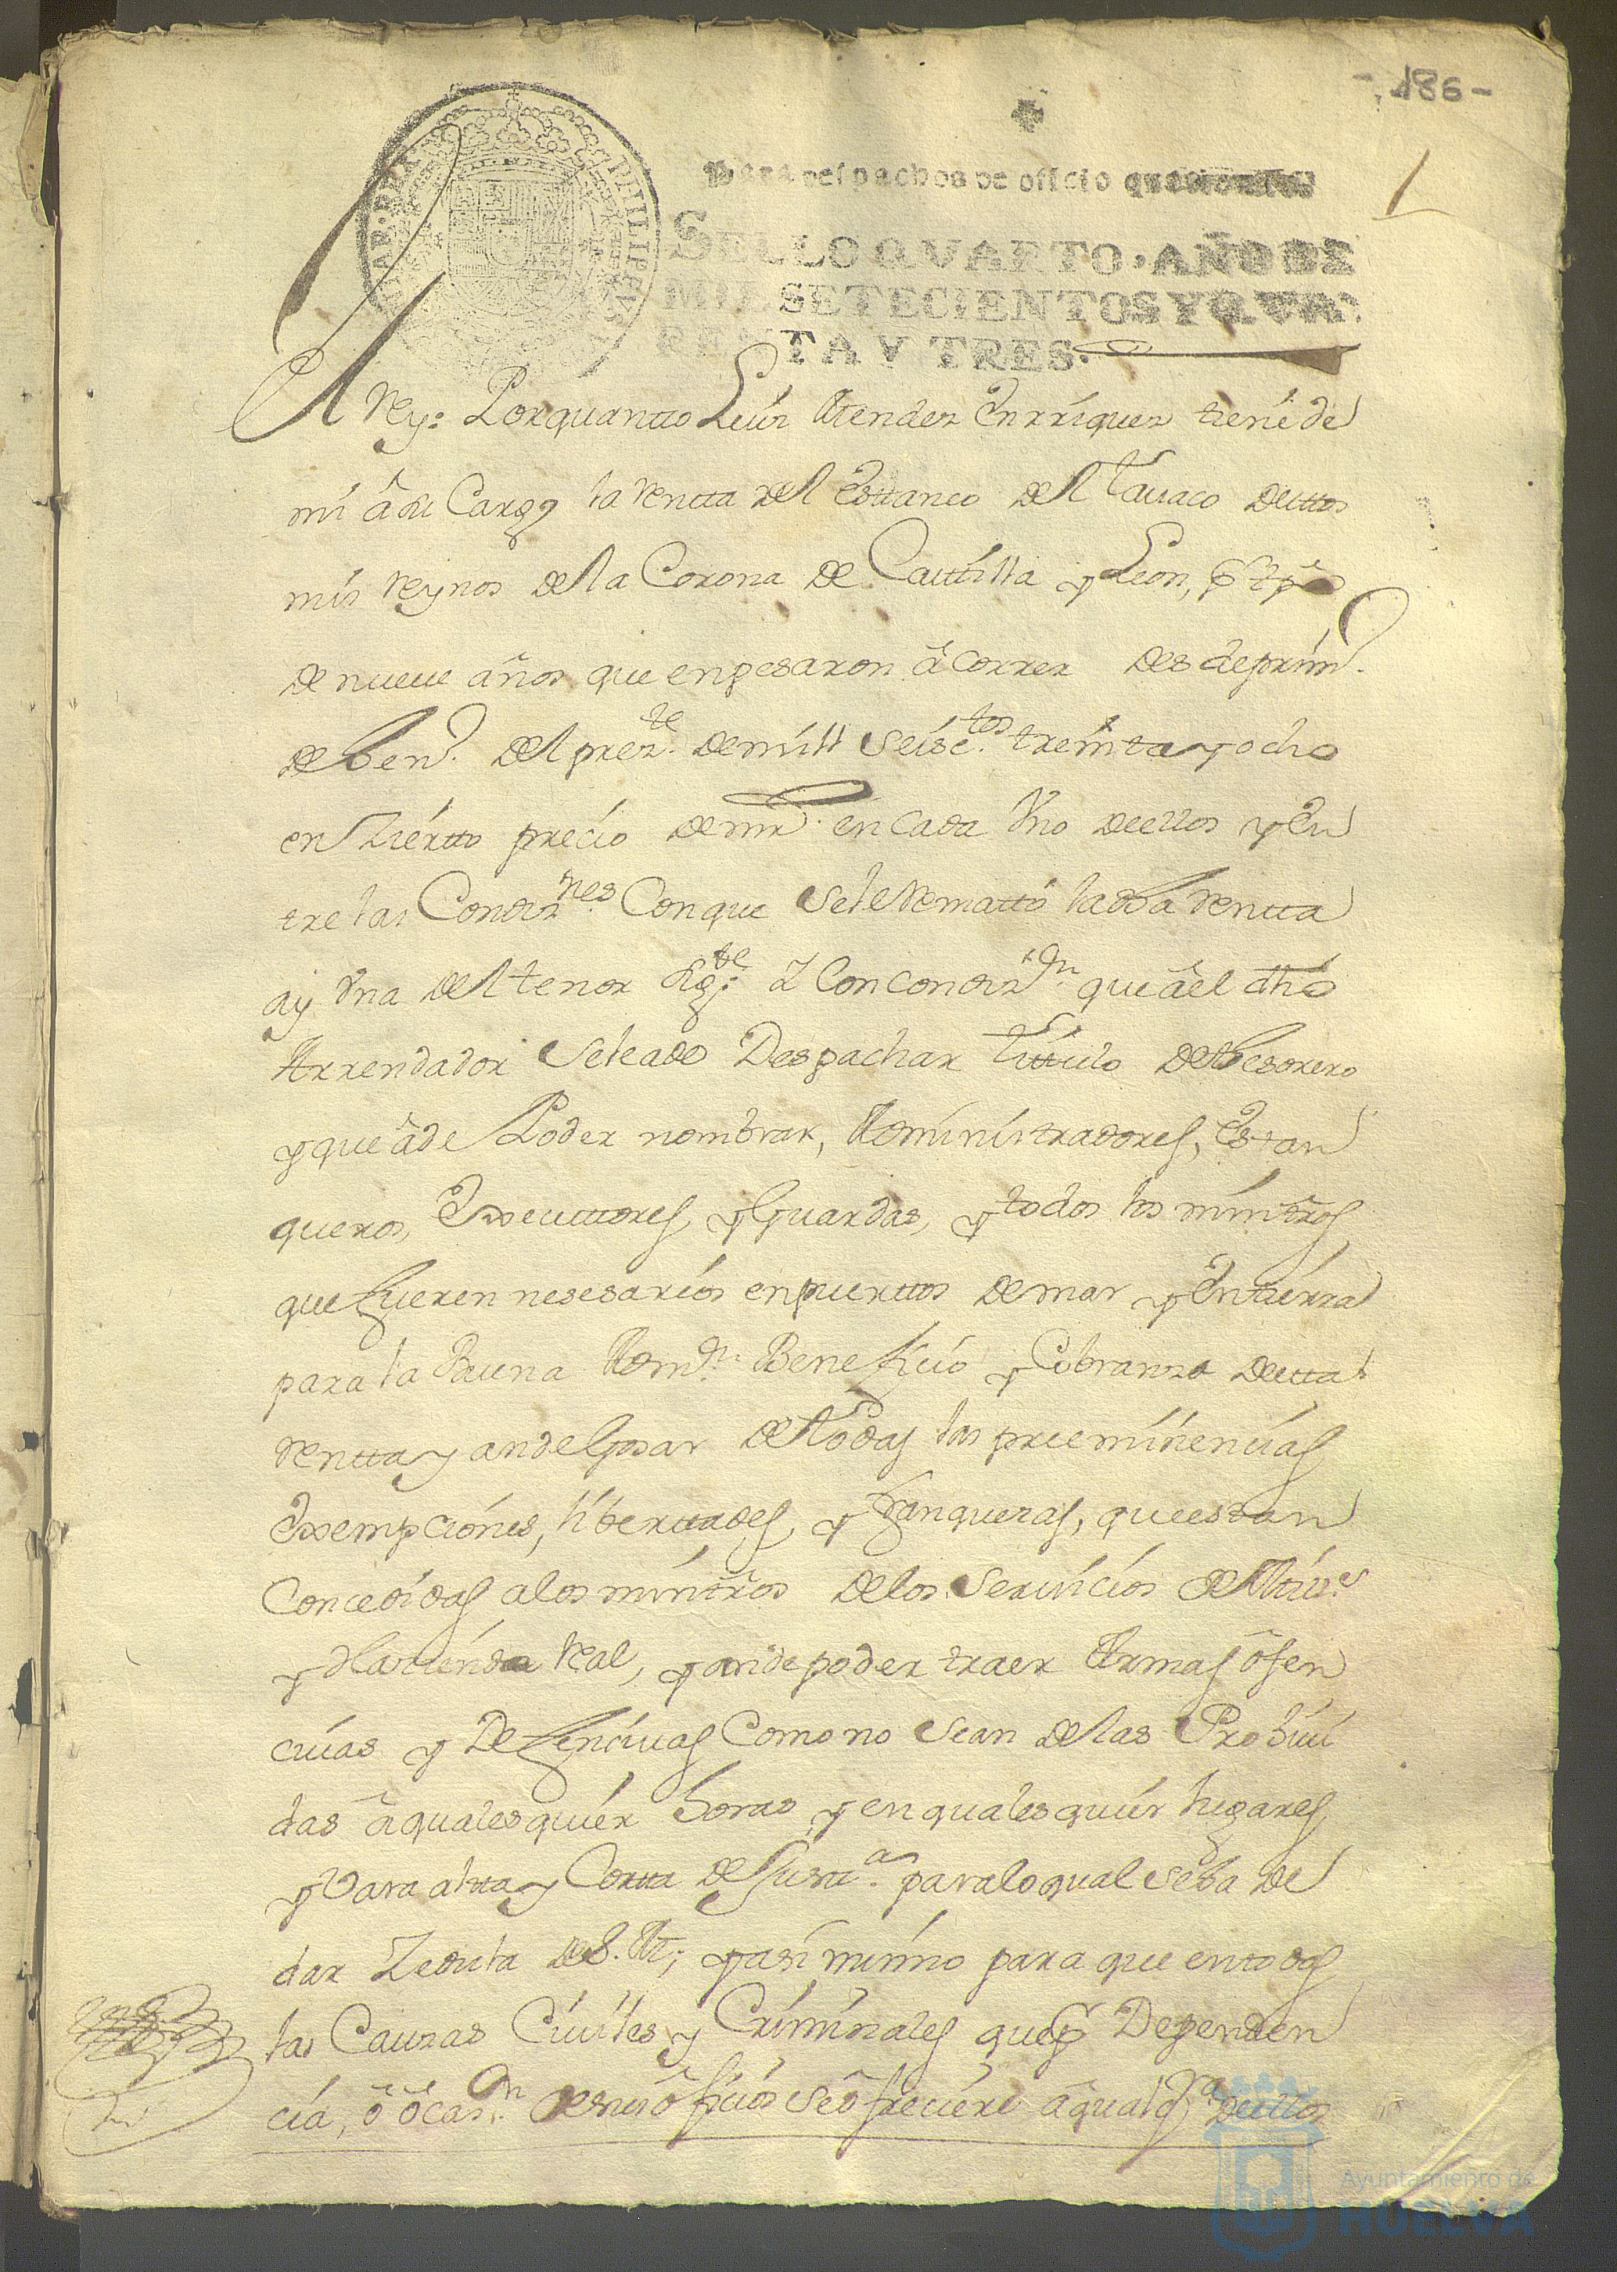 - 186 -
1
Para despachos de oficio quatro mrs
SELLO QVARTO, AÑO DE
MIL SETECIENTOS Y QVA-
RENTA Y TRES.
PHILIPPVS
Rey: Porquantto Luis Mendez Enrriquez tiene de
mi â su Cargo la rentta del Esttanco del Tavaco desttos
mis reynos de la Corona de Casttilla y Leon, pr tpo
de nueve años que enpesaron â correr desde prim.º
de hen.º del prez.te de mill seisc.tos treinta y ocho
en Ziertto precio de mrs. en cada Uno de ellos y en
tre las Condiz.nes Con que se le Remattó la dha rentta
ay Una del tenor sig.te Y Con condiz.on que âel dho
Arrendador se le a de Despachar Tittulo de thesorero
y que âde Poder nombrar, Administradores, Estan
queros, Executtores, y Guardas, y todos los ministros
que fueren nesesarios en puerttos de mar y En tierra
para la Buena Adm.on Beneficio y Cobranza de esta
rentta y an de Gosar de todas las preeminencias
Exempciones, liberttades, y franquezas, que estan
Concedidas a los ministros de los Servicios de Mill.es
y Hacienda Real, y an de poder traer Armas ôfen
civas y Defencivas Como no Sean de las Prohivi
das â quales quier horas, y en quales quier lugares
y Vara altta y Cortta de Justt.a para lo qual se ha de
dar Zedula de S. M.; y asi mismo para que en todas
las Causas Civiles y Criminales que pr Dependen
cia, ô ôcas.on de sus ôficios se ôfreciere â qualq.ra de ellos
Ayuntamiento de
HUELVA